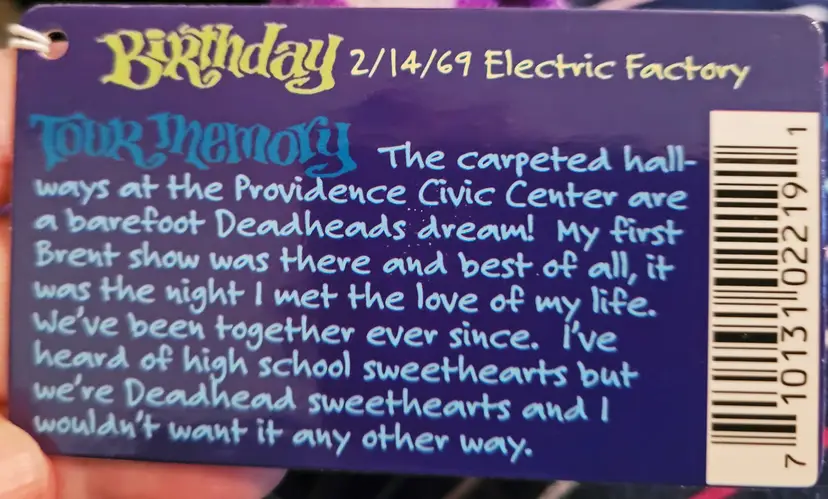 Birthday 2/14/69 Electric Factory
Tour Memory The carpeted hall-
ways at the Providence Civic Center are
a barefoot Deadheads dream! My first
Brent show was there and best of all, it
was the night I met the love of my life.
We've been together ever since. I've
heard of high school sweethearts but
we're Deadhead sweethearts and I
wouldn't want it any other way.
7 10131 02219 1